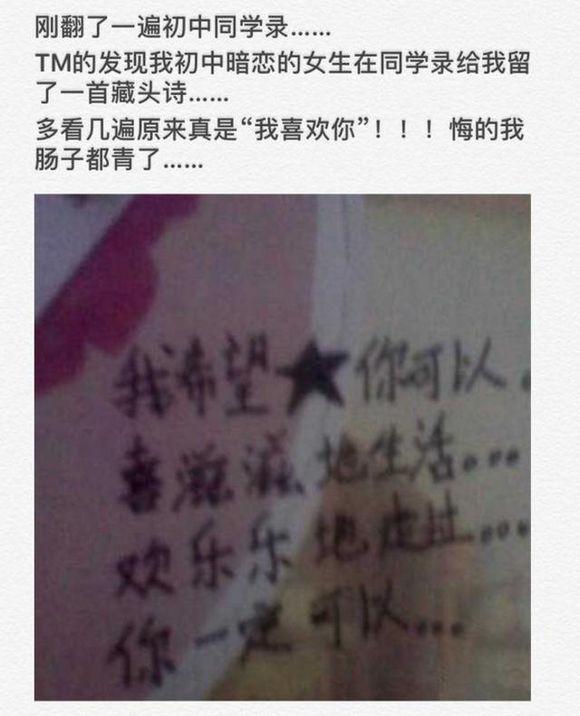 刚翻了一遍初中同学录......
TM的发现我初中暗恋的女生在同学录给我留
了一首藏头诗......
多看几遍原来真是“我喜欢你”！！！悔的我
肠子都青了......
我希望★你可以.
喜滋滋地生活...
欢乐乐地走过...
你一定可以...